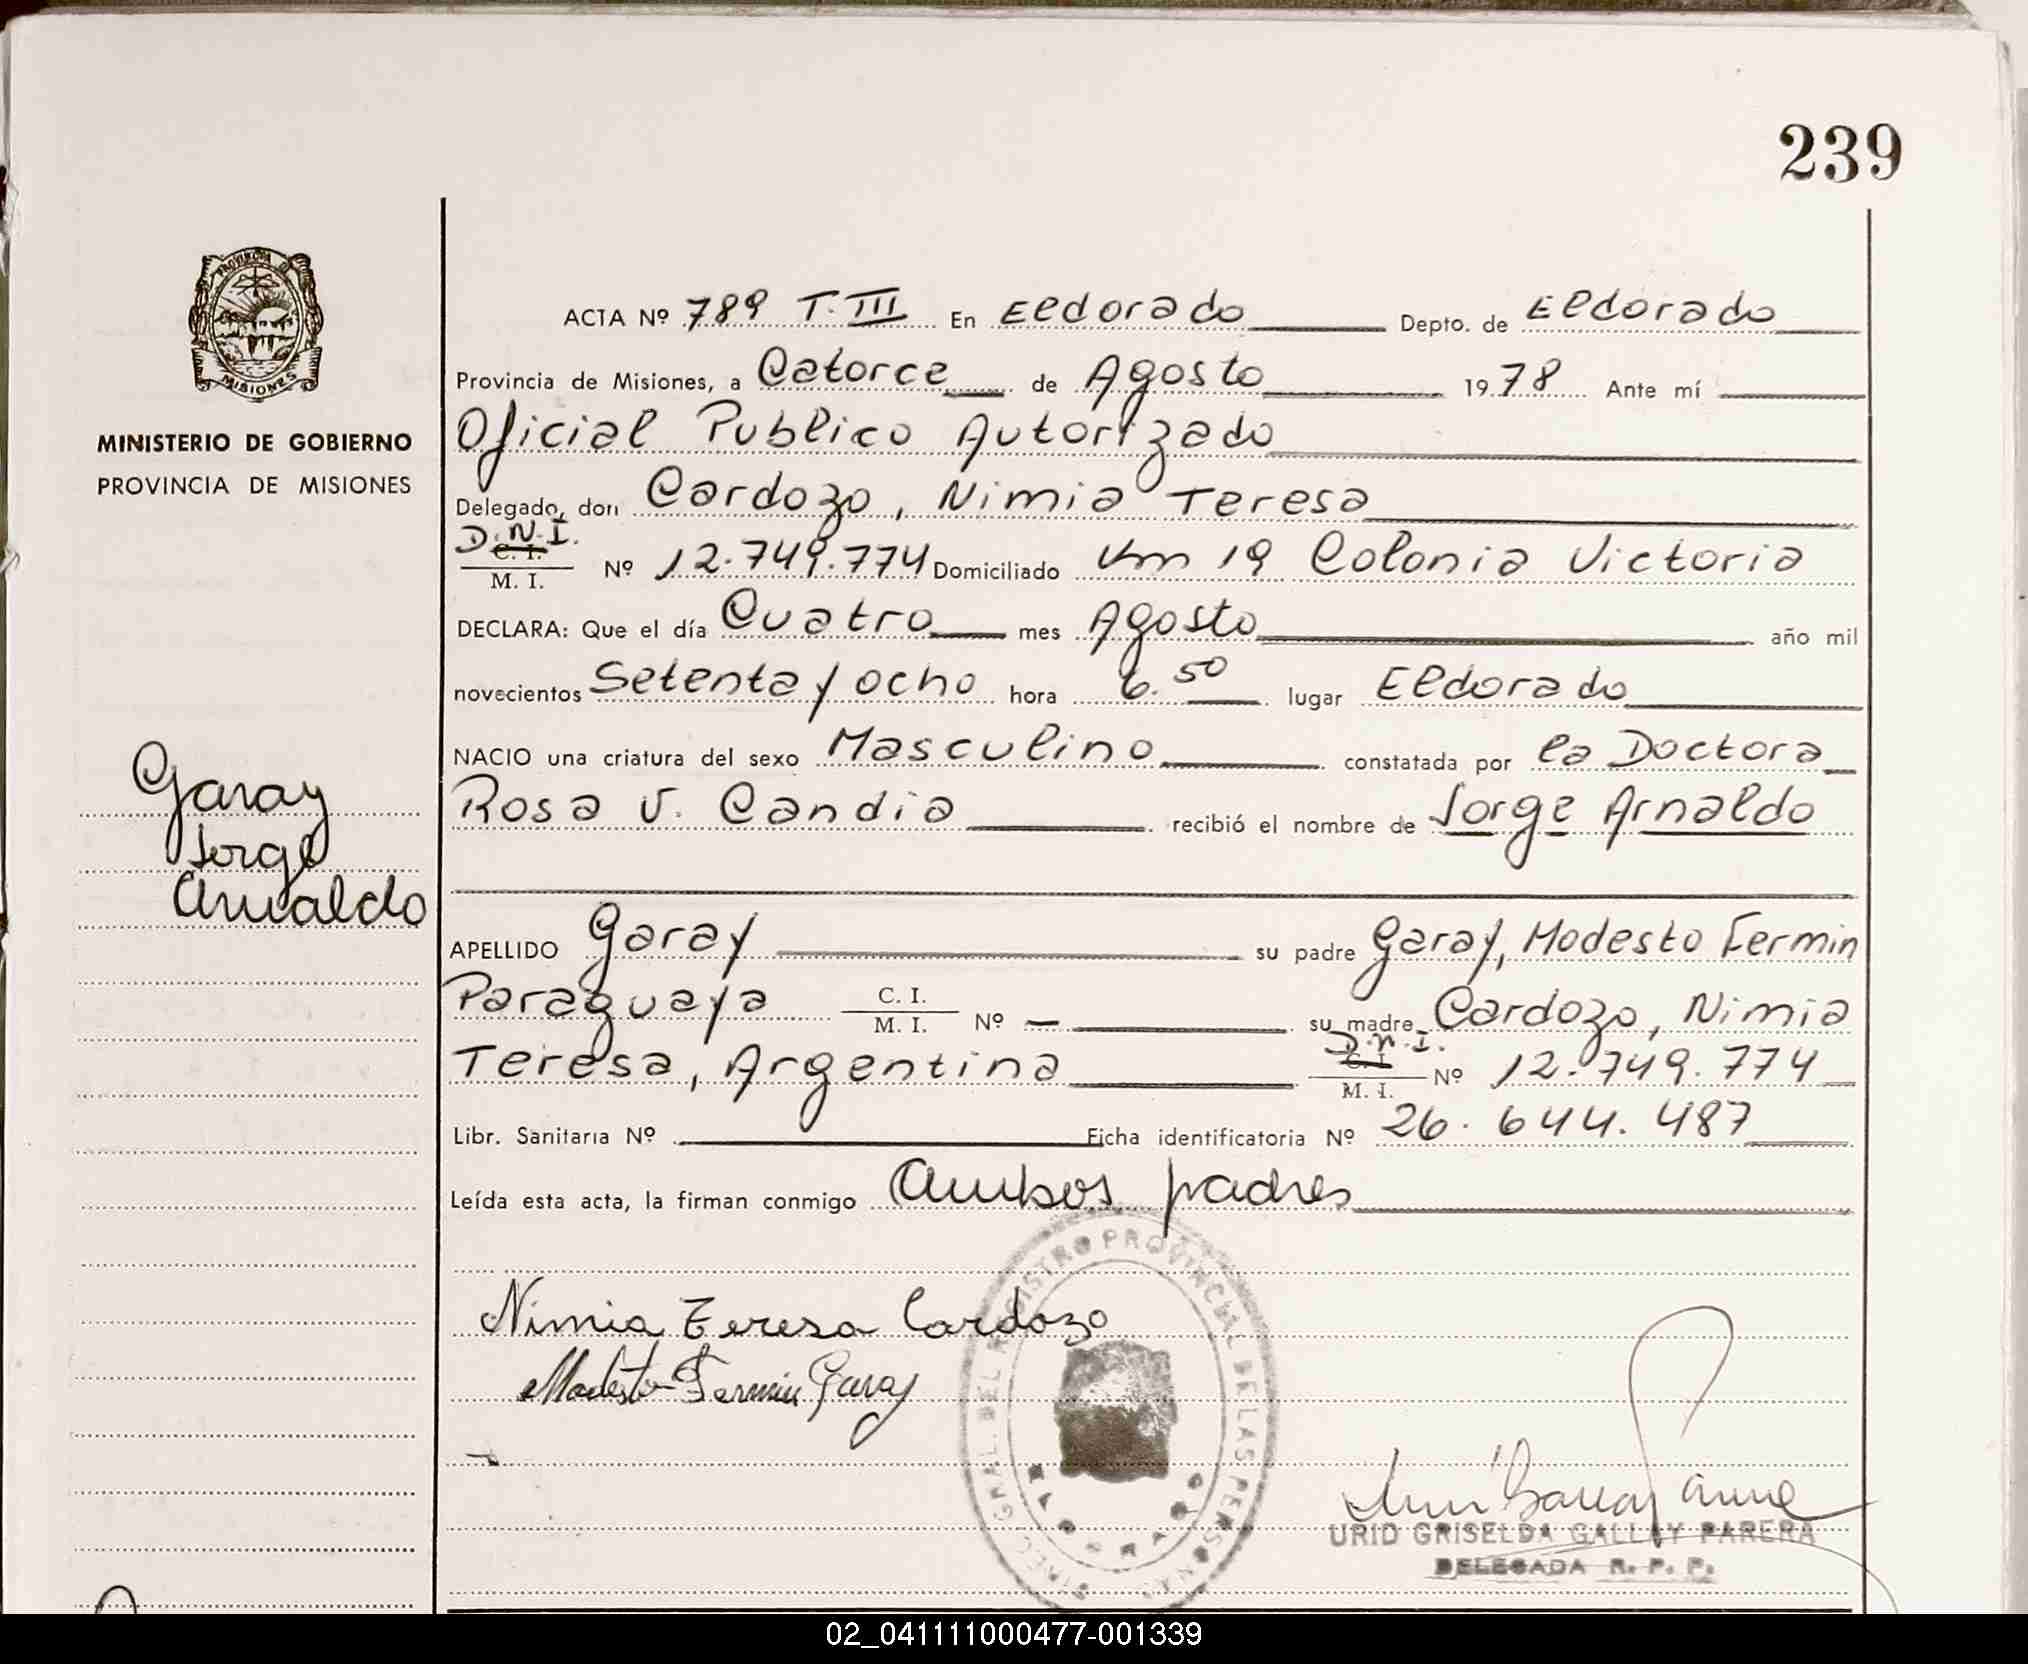 239
PROVINCIA DE
MISIONES
MINISTERIO DE GOBIERNO
PROVINCIA DE MISIONES
Garay
Jorge
Arnaldo
ACTA Nº 789 T. III En Eldorado Depto. de Eldorado
Provincia de Misiones, a Catorce de Agosto 1978 Ante mí
Oficial Publico Autorizado
Delegado, don Cardozo, Nimia Teresa
D.N.I.
C. I.
M. I. Nº 12.749.774 Domiciliado Km 19 Colonia Victoria
DECLARA: Que el día Cuatro mes Agosto año mil
novecientos Setenta y ocho hora 6.50 lugar Eldorado
NACIO una criatura del sexo Masculino constatada por la Doctora
Rosa V. Candia recibió el nombre de Jorge Arnaldo
APELLIDO Garay su padre Garay, Modesto Fermin
Paraguaya C. I. M. I. Nº — su madre Cardozo, Nimia
D.N.I.
Teresa, Argentina C. I. M. I. Nº 12.749.774
Libr. Sanitaria Nº Ficha identificatoria Nº 26.644.487
Leída esta acta, la firman conmigo Ambos padres
Nimia Teresa Cardozo
Modesto Fermin Garay
DIREC. GRAL. DEL REGISTRO PROVINCIAL DE LAS PERSONAS
URID GRISELDA GALLAY PARERA
DELEGADA R. P. P.
02_041111000477-001339